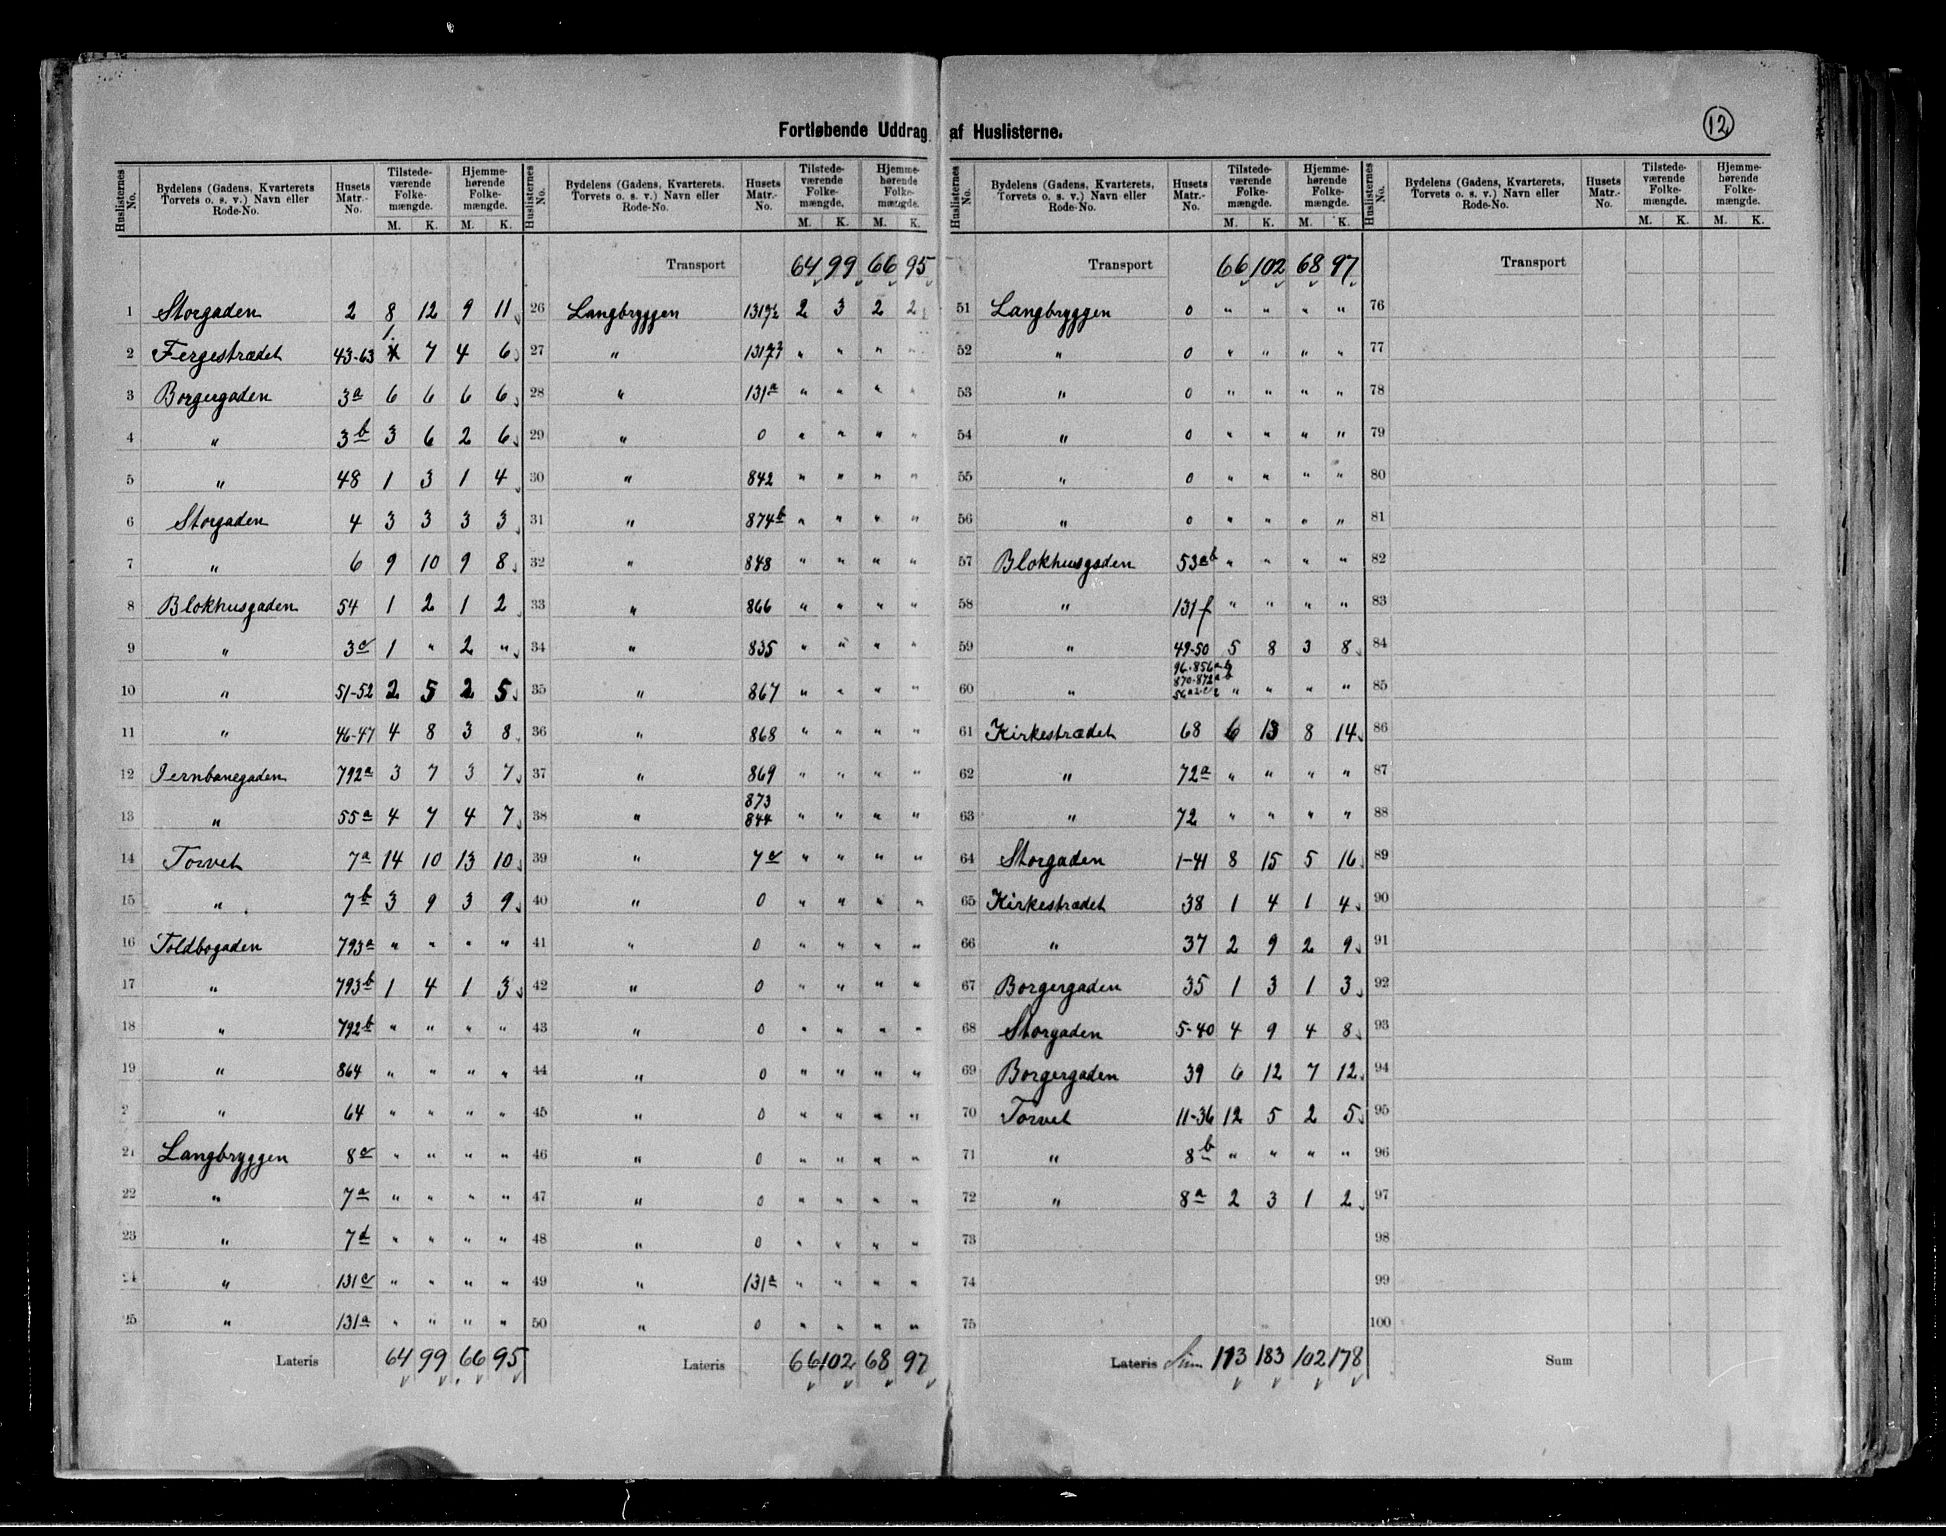 Fortløbende Uddrag af Huslisterne.
12
Huslisternes No. | Bydelens (Gadens, Kvarterets Torvets o. s. v.) Navn eller Rode-No. | Husets Matr.-No. | Tilstedeværende Folkemængde. M. K. | Hjemmehørende Folkemængde. M. K.
1 Storgaden 2 8 12 9 11
2 Fergestrædet 43-63 1 7 4 6
3 Borgergaden 3a 6 6 6 6
4 " 3b 3 6 2 6
5 " 48 1 3 1 4
6 Storgaden 4 3 3 3 3
7 " 6 9 10 9 8
8 Blokhusgaden 54 1 2 1 2
9 " 3c 1 " 2 "
10 " 51-52 2 5 2 5
11 " 46-47 4 8 3 8
12 Jernbanegaden 792a 3 7 3 7
13 " 55a 4 7 4 7
14 Torvet 7a 14 10 13 10
15 " 7b 3 9 3 9
16 Toldbogaden 793a " " " "
17 " 793b 1 4 1 3
18 " 792b " " " "
19 " 864 " " " "
2 " 64 " " " "
21 Langbryggen 8c " " " "
22 " 7a " " " "
23 " 7d " " " "
24 " 131c " " " "
25 " 131a " " " "
Lateris 64 99 66 95
Huslisternes No. | Bydelens (Gadens, Kvarterets, Torvets o. s. v.) Navn eller Rode-No. | Husets Matr.-No. | Tilstedeværende Folkemængde. M. K. | Hjemmehørende Folkemængde. M. K.
Transport 64 99 66 95
26 Langbryggen 2 3 2 2
27 " " " " "
28 " 131a " " " "
29 " 0 " " " "
30 " 842 " " " "
31 " 874b " " " "
32 " 848 " " " "
33 " 866 " " " "
34 " 835 " " " "
35 " 867 " " " "
36 " 868 " " " "
37 " 869 " " " "
38 " 873 844 " " " "
39 " 7c " " " "
40 " 0 " " " "
41 " 0 " " " "
42 " 0 " " " "
43 " 0 " " " "
44 " 0 " " " "
45 " 0 " " " "
46 " 0 " " " "
47 " 0 " " " "
48 " 0 " " " "
49 " 131a " " " "
50 " 0 " " " "
Lateris 66 102 68 97
Huslisternes No. | Bydelens (Gadens, Kvarterets, Torvets o. s. v.) Navn eller Rode-No. | Husets Matr.-No. | Tilstedeværende Folkemængde. M. K. | Hjemmehørende Folkemængde. M. K.
Transport 66 102 68 97
51 Langbryggen 0 " " " "
52 " 0 " " " "
53 " 0 " " " "
54 " 0 " " " "
55 " 0 " " " "
56 " 0 " " " "
57 Blokhusgaden 53ab " " " "
58 " 131f " " " "
59 " 49-50 5 8 3 8
60 " 96-856a-b 870-872a-b " " " "
61 Kirkestrædet 68 6 13 8 14
62 " 72a " " " "
63 " 72 " " " "
64 Storgaden 1-41 8 15 5 16
65 Kirkestrædet 38 1 4 1 4
66 " 37 2 9 2 9
67 Borgergaden 35 1 3 1 3
68 Storgaden 5-40 4 9 4 8
69 Borgergaden 39 6 12 7 12
70 Torvet 11-36 12 5 2 5
71 " 8b " " " "
72 " 8a 2 3 1 2
73
74
75
Lateris Sum 113 183 102 178
Huslisternes No. | Bydelens (Gadens, Kvarterets, Torvets o. s. v.) Navn eller Rode-No. | Husets Matr.-No. | Tilstedeværende Folkemængde. M. K. | Hjemmehørende Folkemængde. M. K.
Transport
76
77
78
79
80
81
82
83
84
85
86
87
88
89
90
91
92
93
94
95
96
97
98
99
100
Sum